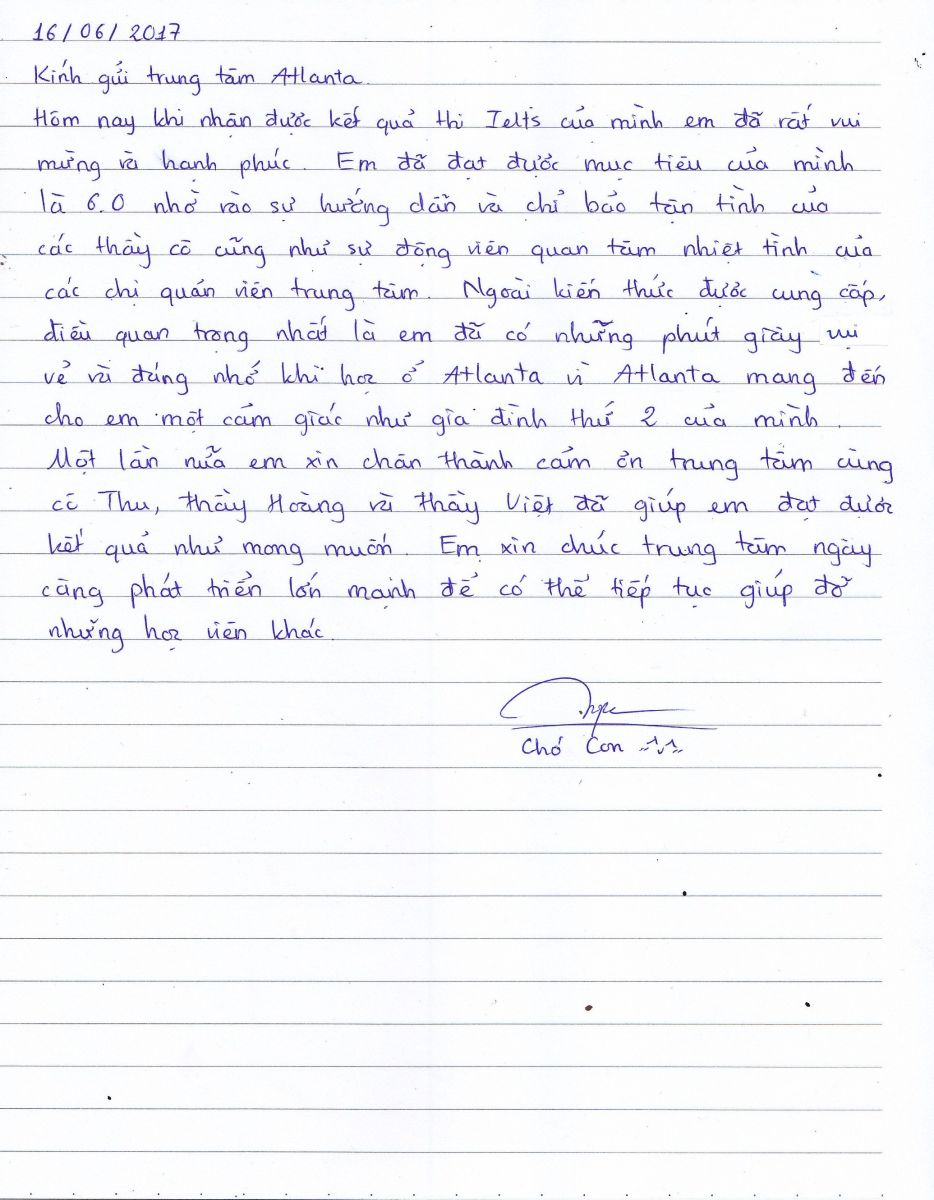 16/06/2017
Kính gửi trung tâm Atlanta.
Hôm nay khi nhận được kết quả thi Ielts của mình em đã rất vui
mừng và hạnh phúc. Em đã đạt được mục tiêu của mình
là 6.0 nhờ vào sự hướng dẫn và chỉ bảo tận tình của
các thầy cô cũng như sự động viên quan tâm nhiệt tình của
các chị quản viên trung tâm. Ngoài kiến thức được cung cấp,
điều quan trọng nhất là em đã có những phút giây vui
vẻ và đáng nhớ khi học ở Atlanta vì Atlanta mang đến
cho em một cảm giác như gia đình thứ 2 của mình.
Một lần nữa em xin chân thành cảm ơn trung tâm cùng
cô Thu, thầy Hoàng và thầy Việt đã giúp em đạt được
kết quả như mong muốn. Em xin chúc trung tâm ngày
càng phát triển lớn mạnh để có thể tiếp tục giúp đỡ
những học viên khác.
Chó Con